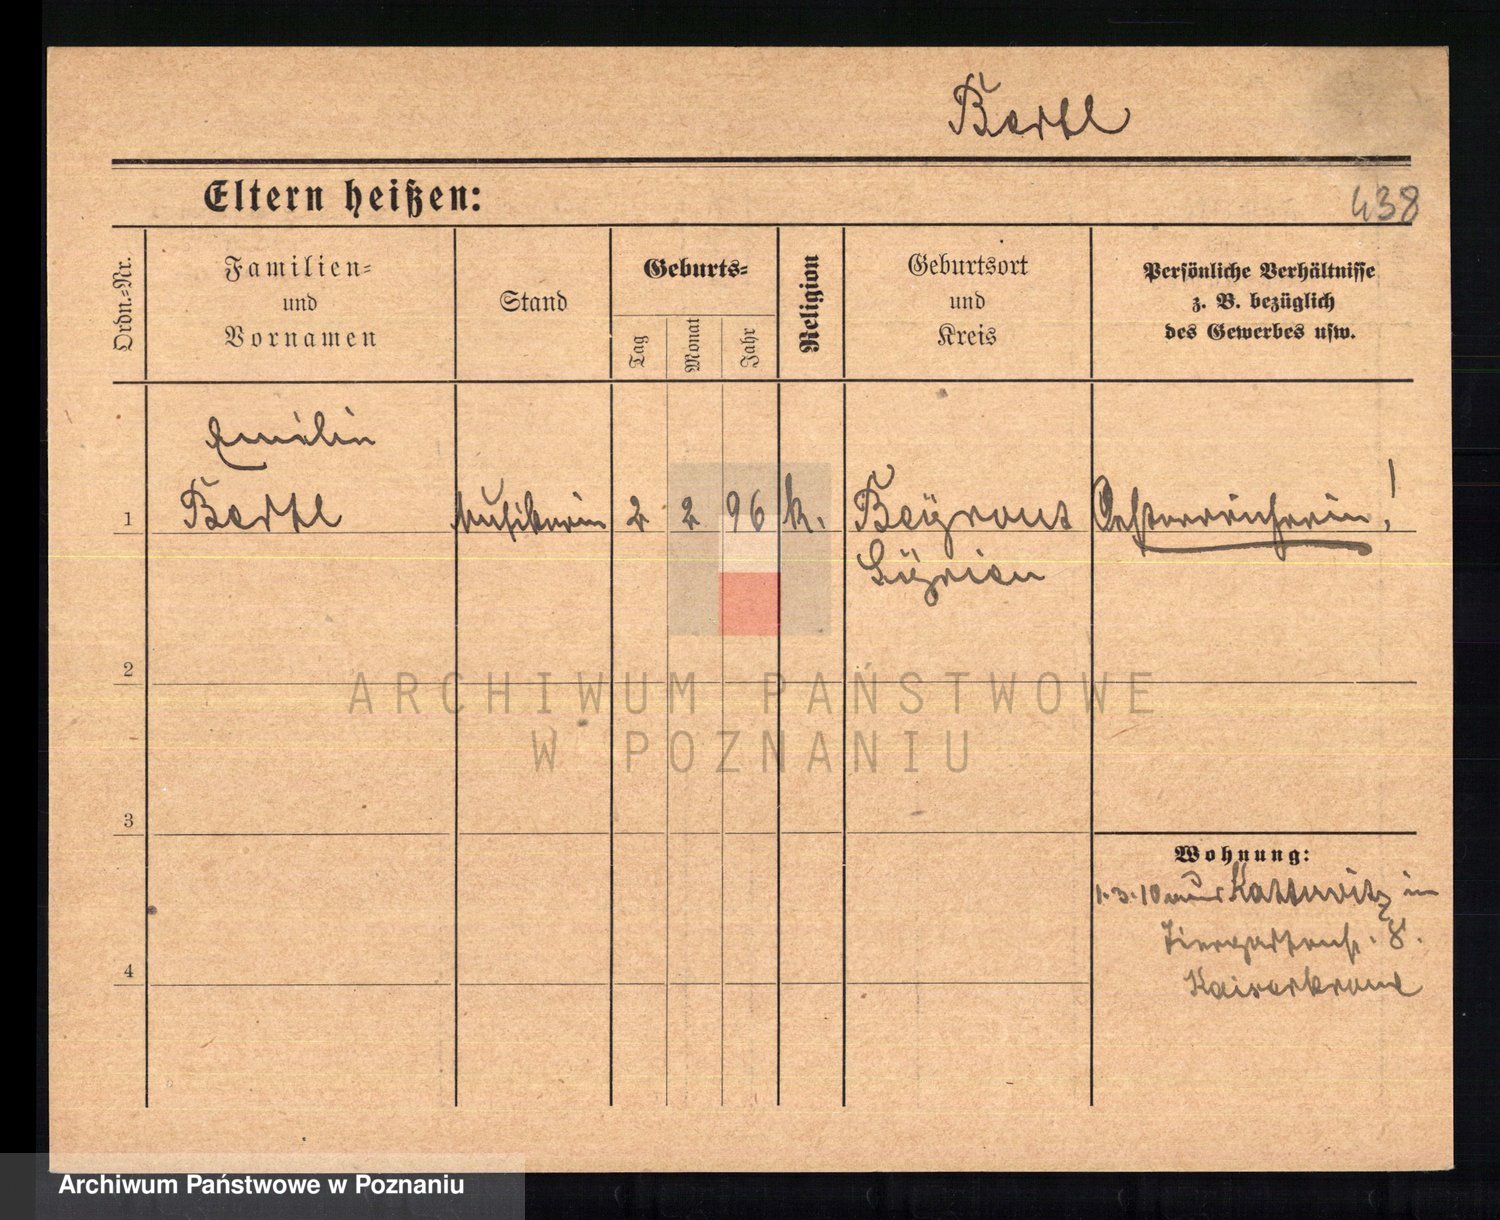 Bartl
Eltern heißen:
438
Ordn.-Nr.
Familien-
und
Vornamen
Stand
Geburts-
Tag
Monat
Jahr
Religion
Geburtsort
und
Kreis
Persönliche Verhältnisse
z. B. bezüglich
des Gewerbes usw.
Emilie
1 Bartl Musikerin 2 2 96 k. Beyrout Oesterreicherin!
Syrien
2
ARCHIWUM PAŃSTWOWE
W POZNANIU
3
Wohnung:
1.3.10 aus Kattowitz in
Tiergartenstr. 8.
4
Kaiserkrone
Archiwum Państwowe w Poznaniu